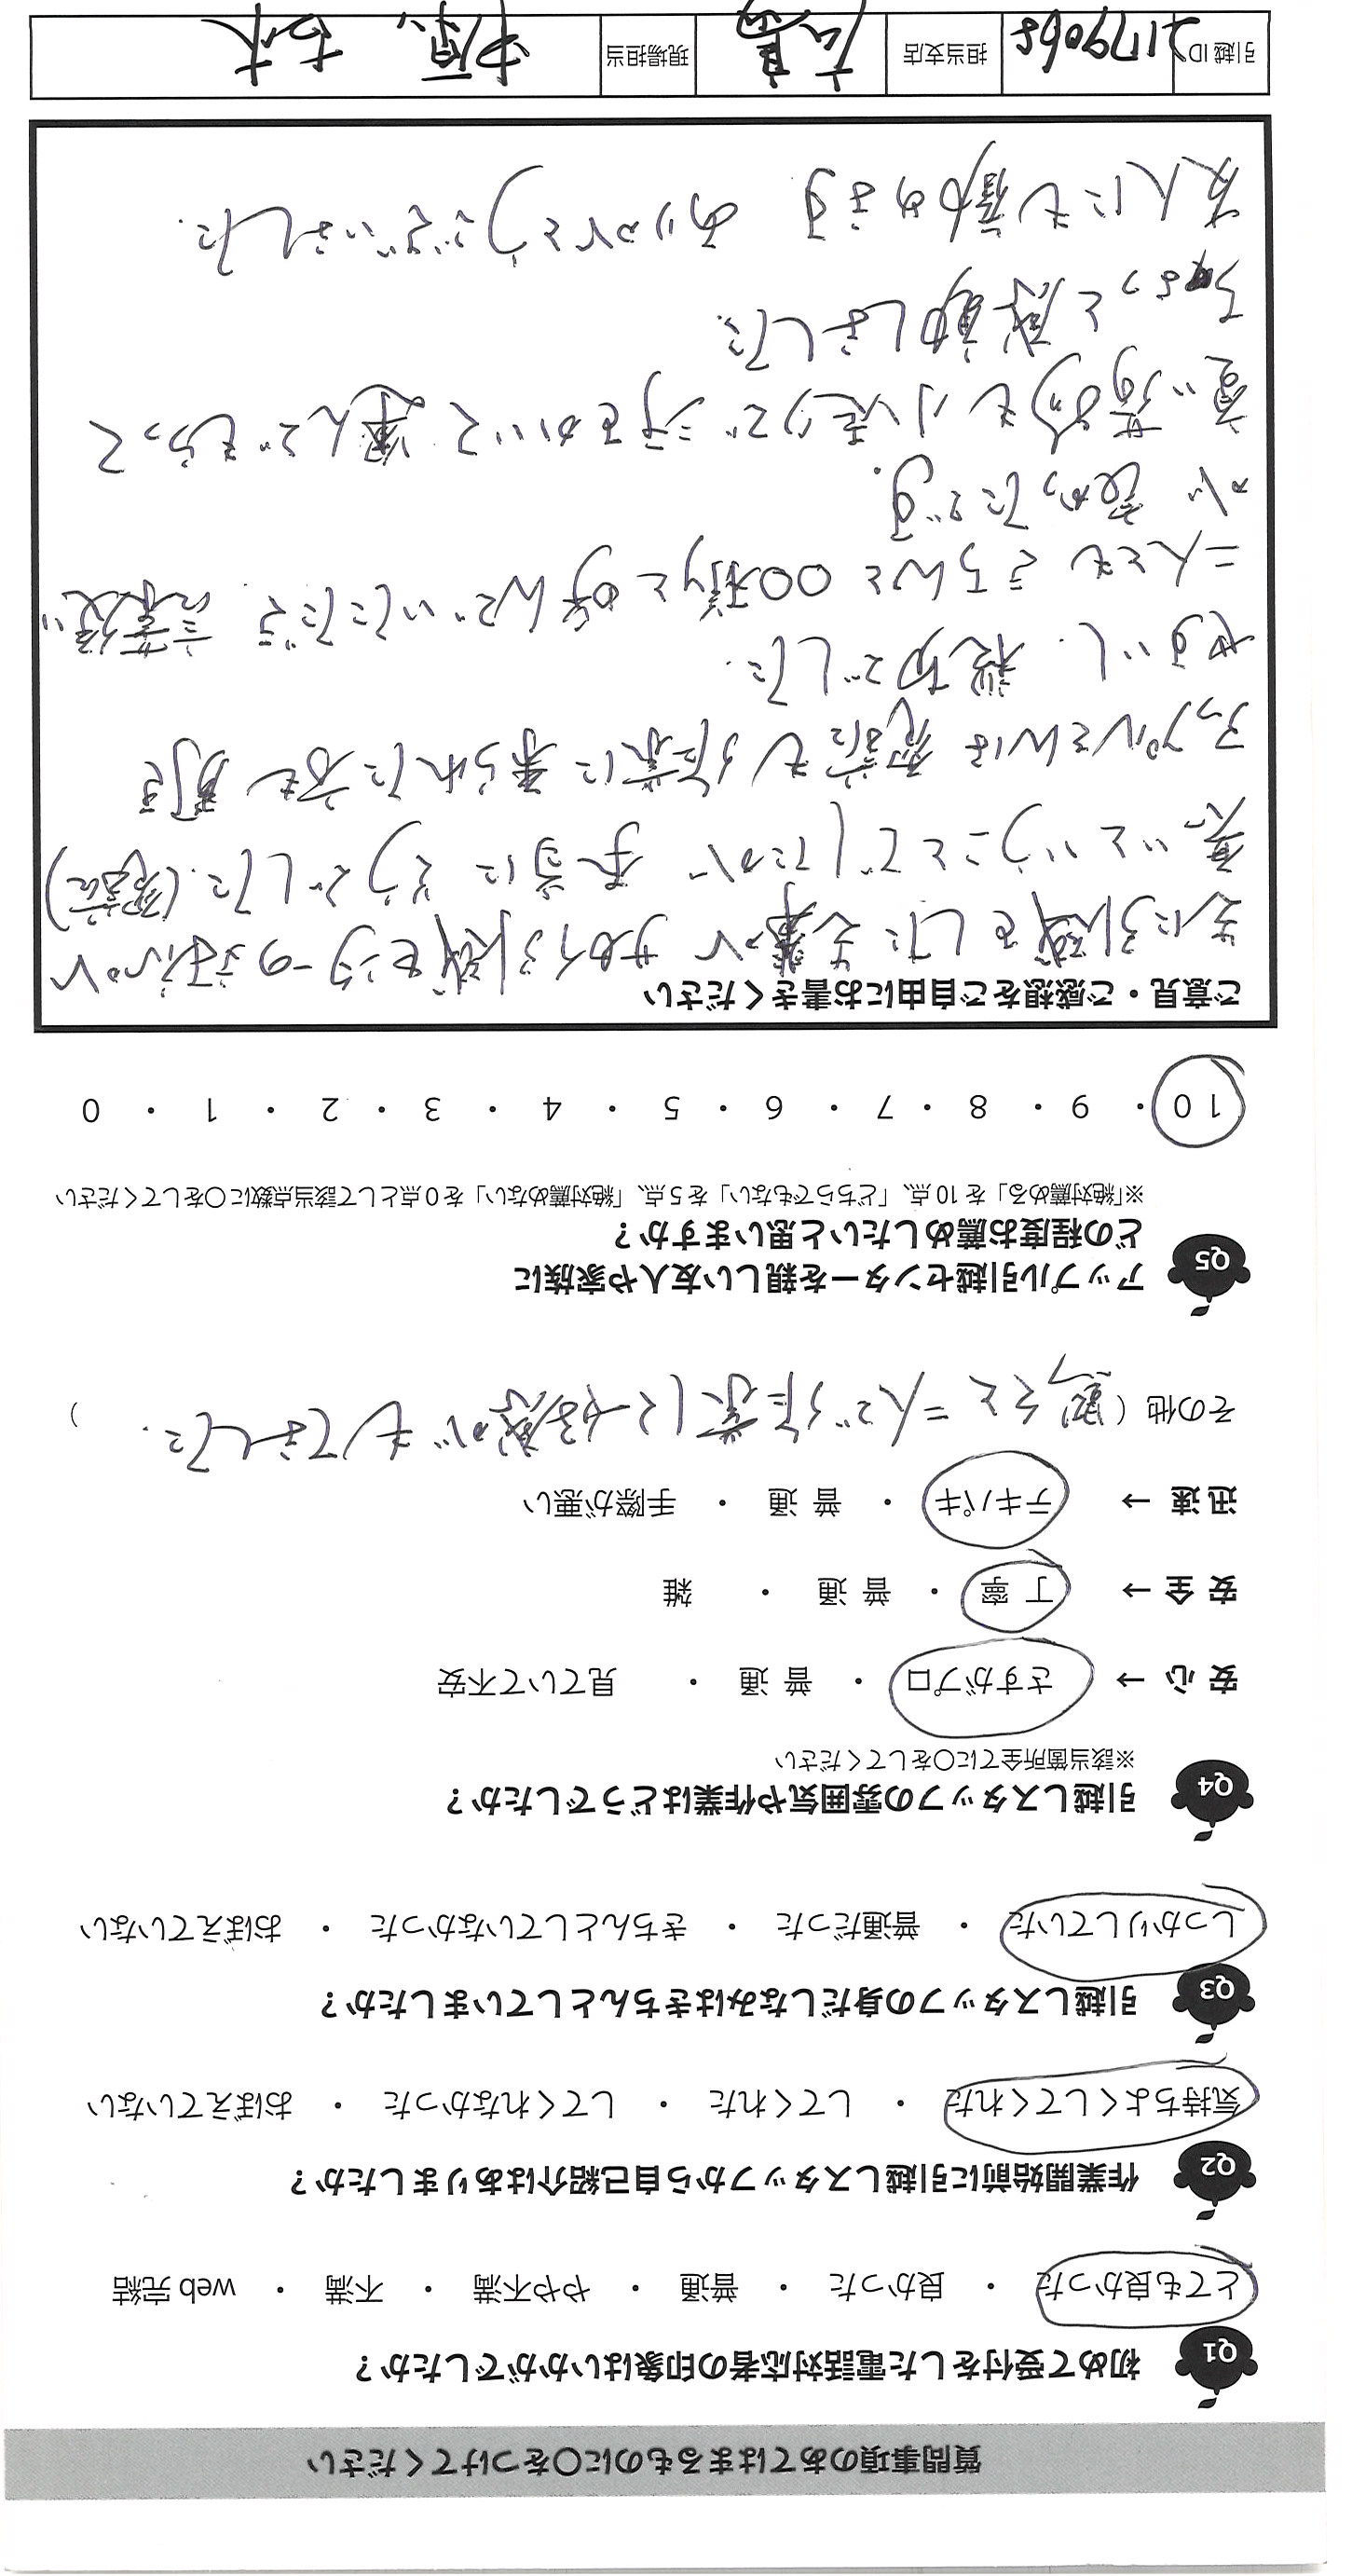 質問事項のあてはまるものに〇をつけてください
Q1 初めて受付をした電話対応者の印象はいかがでしたか？
とても良かった ・ 良かった ・ 普通 ・ やや不満 ・ 不満 ・ web 完結
Q2 作業開始前に引越しスタッフから自己紹介はありましたか？
気持ちよくしてくれた ・ してくれた ・ してくれなかった ・ おぼえていない
Q3 引越しスタッフの身だしなみはきちんとしていましたか？
しっかりしていた ・ 普通だった ・ きちんとしていなかった ・ おぼえていない
Q4 引越しスタッフの雰囲気や作業はどうでしたか？
※該当箇所全てに〇をしてください
安心 → さすがプロ ・ 普通 ・ 見ていて不安
安全 → 丁寧 ・ 普通 ・ 雑
迅速 → テキパキ ・ 普通 ・ 手際が悪い
その他 ( 黙々と二人で作業して好感がもてました. )
Q5 アップル引越センターを親しい友人や家族に
どの程度お薦めしたいと思いますか？
※「絶対薦める」を 10 点、「どちらでもない」を 5 点、「絶対薦めない」を 0 点として該当点数に〇をしてください
10 ・ 9 ・ 8 ・ 7 ・ 6 ・ 5 ・ 4 ・ 3 ・ 2 ・ 1 ・ 0
ご意見・ご感想をご自由にお書きください
先に引越をした先輩が サカイ引越センターの方が
悪いということでしたが 本当に そうでした.(電話)
アップルさんは 電話も作業に来られた方も 話し
やすいし. 親切でした.
二人とも きちんと 〇〇様 と呼んでいただき. 言葉使い
が 良かったです.
重い荷物も小走りで 汗をかいて 運んでもらって
ちょっと感動しました.
友人にも薦めます ありがとうございました.
引越 ID 2179068 担当支店 広島 現場担当